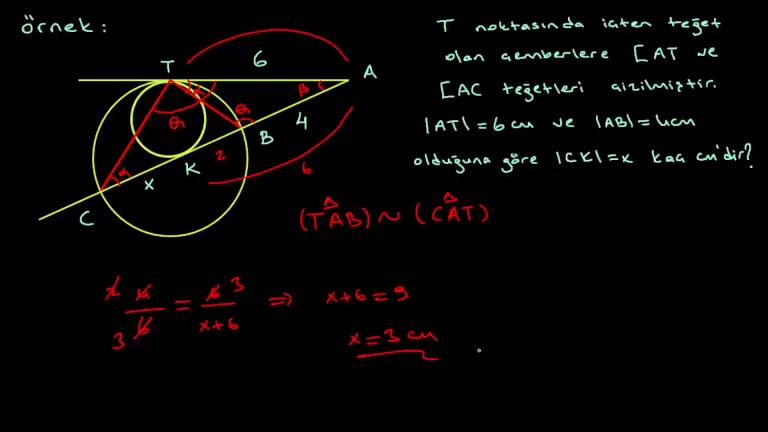 örnek:
T noktasında içten teğet
olan çemberlere [AT ve
[AC teğetleri çizilmiştir.
|AT|=6cm ve |AB|=4cm
olduğuna göre |CK|=x kaç cm'dir?
T
6
A
β
θ
θ
B
4
2
K
6
α
x
C
(TAB)~(CAT)
2 4 / 3 6 = 6 3 / x+6 ⇒ x+6=9
x=3cm